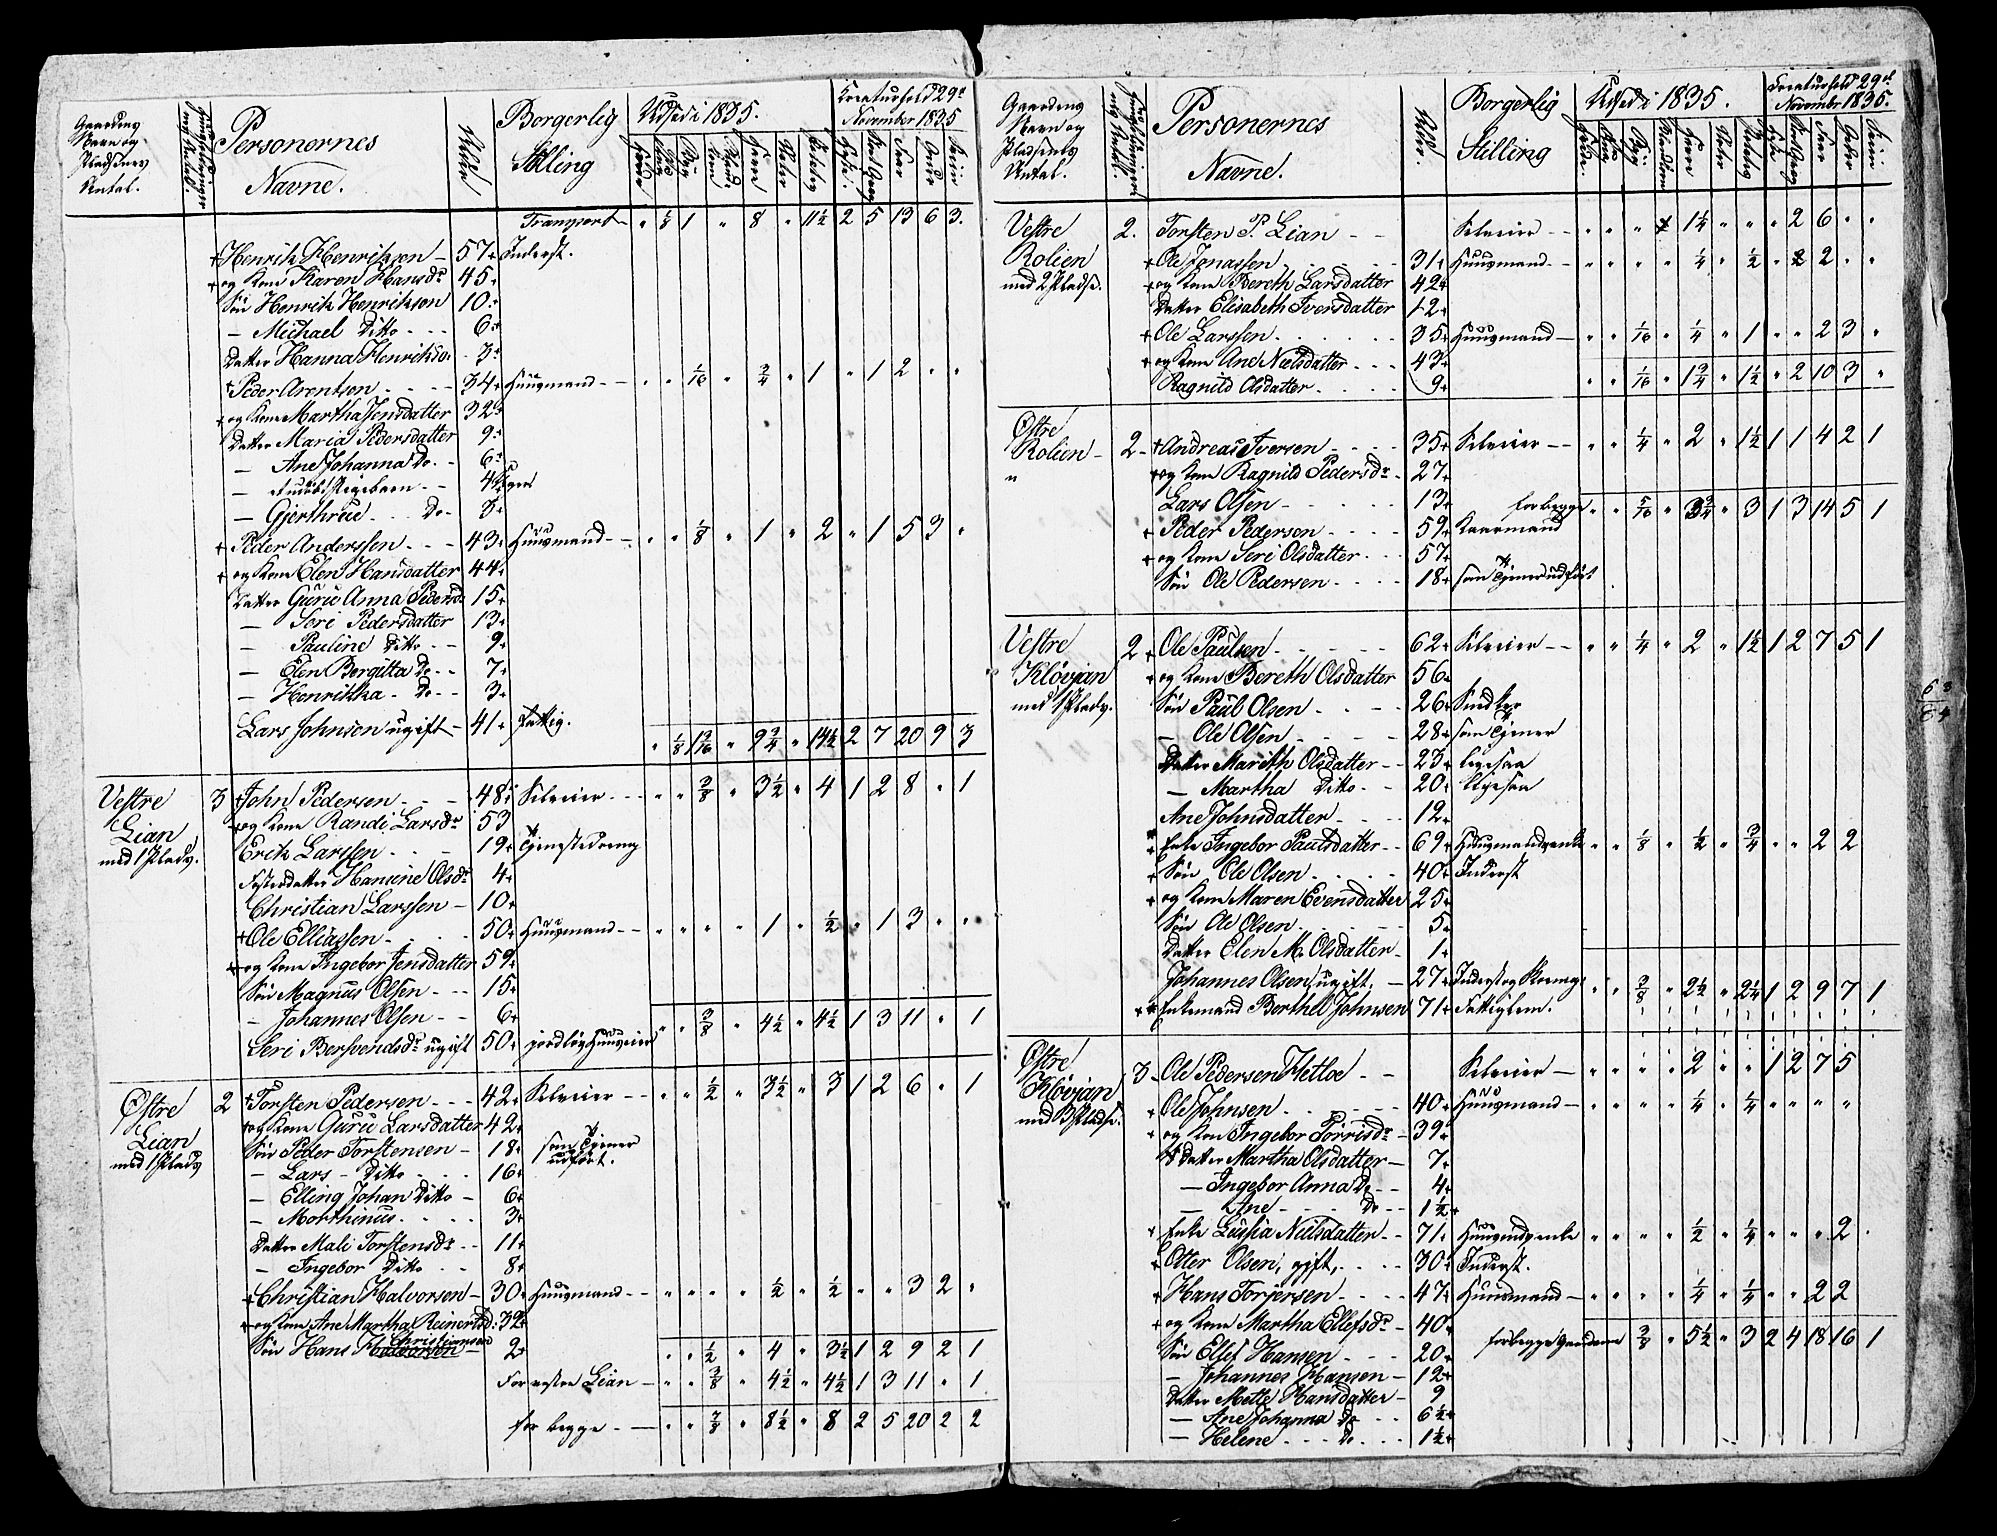 Gaardens Navn og Pladsenes Antal. Personernes Navne. Alder Borgerlig Stilling Udsæd i 1835. Kreaturhold 29de November 1835
Transport " 1/8 1 " 8 " 11 1/2 2 5 13 6 3.
+ Henrik Henriksen – 57+ Inderst.
+ og Kone Karen Hansdr 45+
Søn Henrik Henriksen 10+
— Michael Ditto - - - 6+
Datter Hanna Henriksdr. - 3+
+ Peder Arentsen - - - - 34+ Huusmand - - " " 1/16 " 3/4 " 1 " 1 2 " "
+ og Kone Martha Jensdatter 32+
Datter Maria Pedersdatter 9+
— Ane Johanna Do. - 6+
— et udøbt Pigebarn - -
— Gjerthrue - - Do -
+ Peder Anderssen - - - 43+ Huusmand - - " " 1/8 " 1 " 2 " 1 5 3 "
+ og Kone Elen Hansdatter 44+
Datter Guru Anna Pedersd: 15+
— Seri Pedersdatter 13+
— Pauline Ditto - - 9+
— Elen Bergitta Do - - 7+
— Henrikka - Do - - 3+
Lars Johnsen ugift - 41+ Fattig.
" 1/8 1 3/16 " 9 3/4 " 14 1/2 2 7 20 9 3
Vestre Lian med 1 Plads. 3 + John Pedersen - - - 48+ Selveier - - - " " 3/8 " 3 1/2 " 4 1 2 8 " 1
+ og Kone Randi Larsdr 53
Erik Larssen - - - 19+ Tjenestedreng
Fosterdatter Hansine Olsdr 4+
Christian Larssen - 10+
+ Ole Elliassen - - - 50+ Huusmand - - " " " " 1 " 1/2 " 1 3 " "
+ og Kone Ingebor Jensdatter 59+
Søn Magnus Olsen - - - 15+
— Johannes Olsen - - 6+
" " 3/8 " 4 1/2 " 4 1/2 1 3 11 " 1
Seri Bersvendsdr ugift 50+ jordløs Huuseier
Østre Lian med 1 Plads 2 + Torsten Pedersen - - - 42+ Selveier - - " " 1/2 " 3 1/2 " 3 1 2 6 " 1
+ og Kone Guru Larsdatter 42+
Søn Peder Torstensen - 18+ som Tjener udført.
— Lars - Ditto - - - 16+
— Elling Johan Ditto - 6+
— Morthinus - - - - 3+
Datter Mali Torstensdr - - 11+
— Ingebor Ditto - - 8+
+ Christian Halvorsen - 30+ Huusmand - - " " " " 1/2 " 1/2 " " 3 2 "
+ og Kone Ane Martha Reinertsd: 39+
Christiansen
Søn Hans Halvorsen - 2+
" " 1/2 " 4 " 3 1/2 1 2 9 2 1
For vestre Lian - " " 3/8 " 4 1/2 " 4 1/2 1 3 11 " 1
for begge - - " " 7/8 " 8 1/2 " 8 2 5 20 2 2
Gaardens Navn og Pladsenes Antal. Personernes Navne. Alder. Borgerlig Stilling Udsæd i 1835. Kreaturhold 29de November 1835.
Vestre Rolien med 2 Pladse. 2. Torsten P. Lian - - Selveier - - " " " 1 1/4 " " " 2 6 " "
+ Ole Jonassen - - - - 31+ Huusmand - - " " " " 1/4 " 1/2 " 2 2 " "
+ og Kone Bereth Larsdatter 42+
Datter Elisabeth Iversdatter 12+
+ Ole Larssen - - - - - 35+ Huusmand - - " " 1/16 " 1/4 " 1 " " 2 3 "
+ og Kone Ane Nielsdatter - - - 43+
" " 1/16 " 1 3/4 " 1 1/2 " 2 10 3 "
Ragnild Olsdatter - - - - 9+
Østre Rolien - 2 - + Andreas Iversen - - - - 35+ Selveier - - " " 1/4 " 2 " 1 1/2 1 1 4 2 1
"
+ og Kone Ragnild Pedersdr - 27+
Lars Olsen - - - - - 13+
for begge " " 5/16 " 3 3/4 " 3 1 3 14 5 1
+ Peder Pedersen - - - - 59+ Kaarmand
+ og Kone Seri Olsdatter - - - 57+
Søn Ole Pedersen - - - - 18+ som Tjener udført
Vestre Kløvjan med 1 Plads. 2 + Ole Paulsen - - - - - 62+ Selveier - - " " 1/4 " 2 " 1 1/2 1 2 7 5 1
+ og Kone Bereth Olsdatter 56+
Søn Paul Olsen - - - - 26+ Snedker
— Ole Olsen - - - - 28+ som Tjener
Datter Marith Olsdatter - - 23+ ligesaa
— Martha Ditto - - 20+ ligesaa
Ane Johnsdatter - - - - 12+
+ Enke Ingebor Paulsdatter - - 69+ Huusmandsenke " " 1/8 " 1/2 " 3/4 " " 2 2
+ Søn Ole Olsen - - - - 40+ Inderst
+ og Kone Maren Evensdatter 25+
Søn Ole Olsen - - - - 5+
Datter Elen M. Olsdatter - 1+
Johannes Olsen, ugift, - 27+ Inderst og
" " 3/8 " 2 1/2 " 2 1/4 1 2 9 7 1
+ Enkemand Berthel Johnsen 71+ Fattiglem.
Østre Kløvjan med 3 Pladse. 3 - Ole Pedersen Hetloe - - Selveier - " " " " 2 " " 1 2 7 5
+ Ole Johnsen - - - - - 40+ Huusmand - " " " " 1/4 " 1/4 " " " "
+ og Kon Ingebor Torrisdr - 39+
Datter Martha Olsdatter - 7+
— Ingebor Anna Do - - 4+
— Ane - - - - Do - - 1 1/2+
+ Enke Lusia Nielsdatter - - 71+ Huusmdsenke " " " " 1/2 " 1/4 " " " 2
Otter Olsen, gift, - - - 30+ Inderst.
+ Hans Torjersen - - - - 47+ Huusmand - " " " " 1/4 " 1/4 " " 2 2
+ og Kone Martha Ellefsdr - 40+
for begge Gaardene 3/8 " 5 1/2 " 3 2 4 18 16 1
Søn Ellef Hansen - - - 20+
— Johannes Hansen - 12+
Datter Mette Hansdatter - 9
— Ane Johanna Do - - - 6 1/2+
— Helene - - - Do - - - 1 1/2+